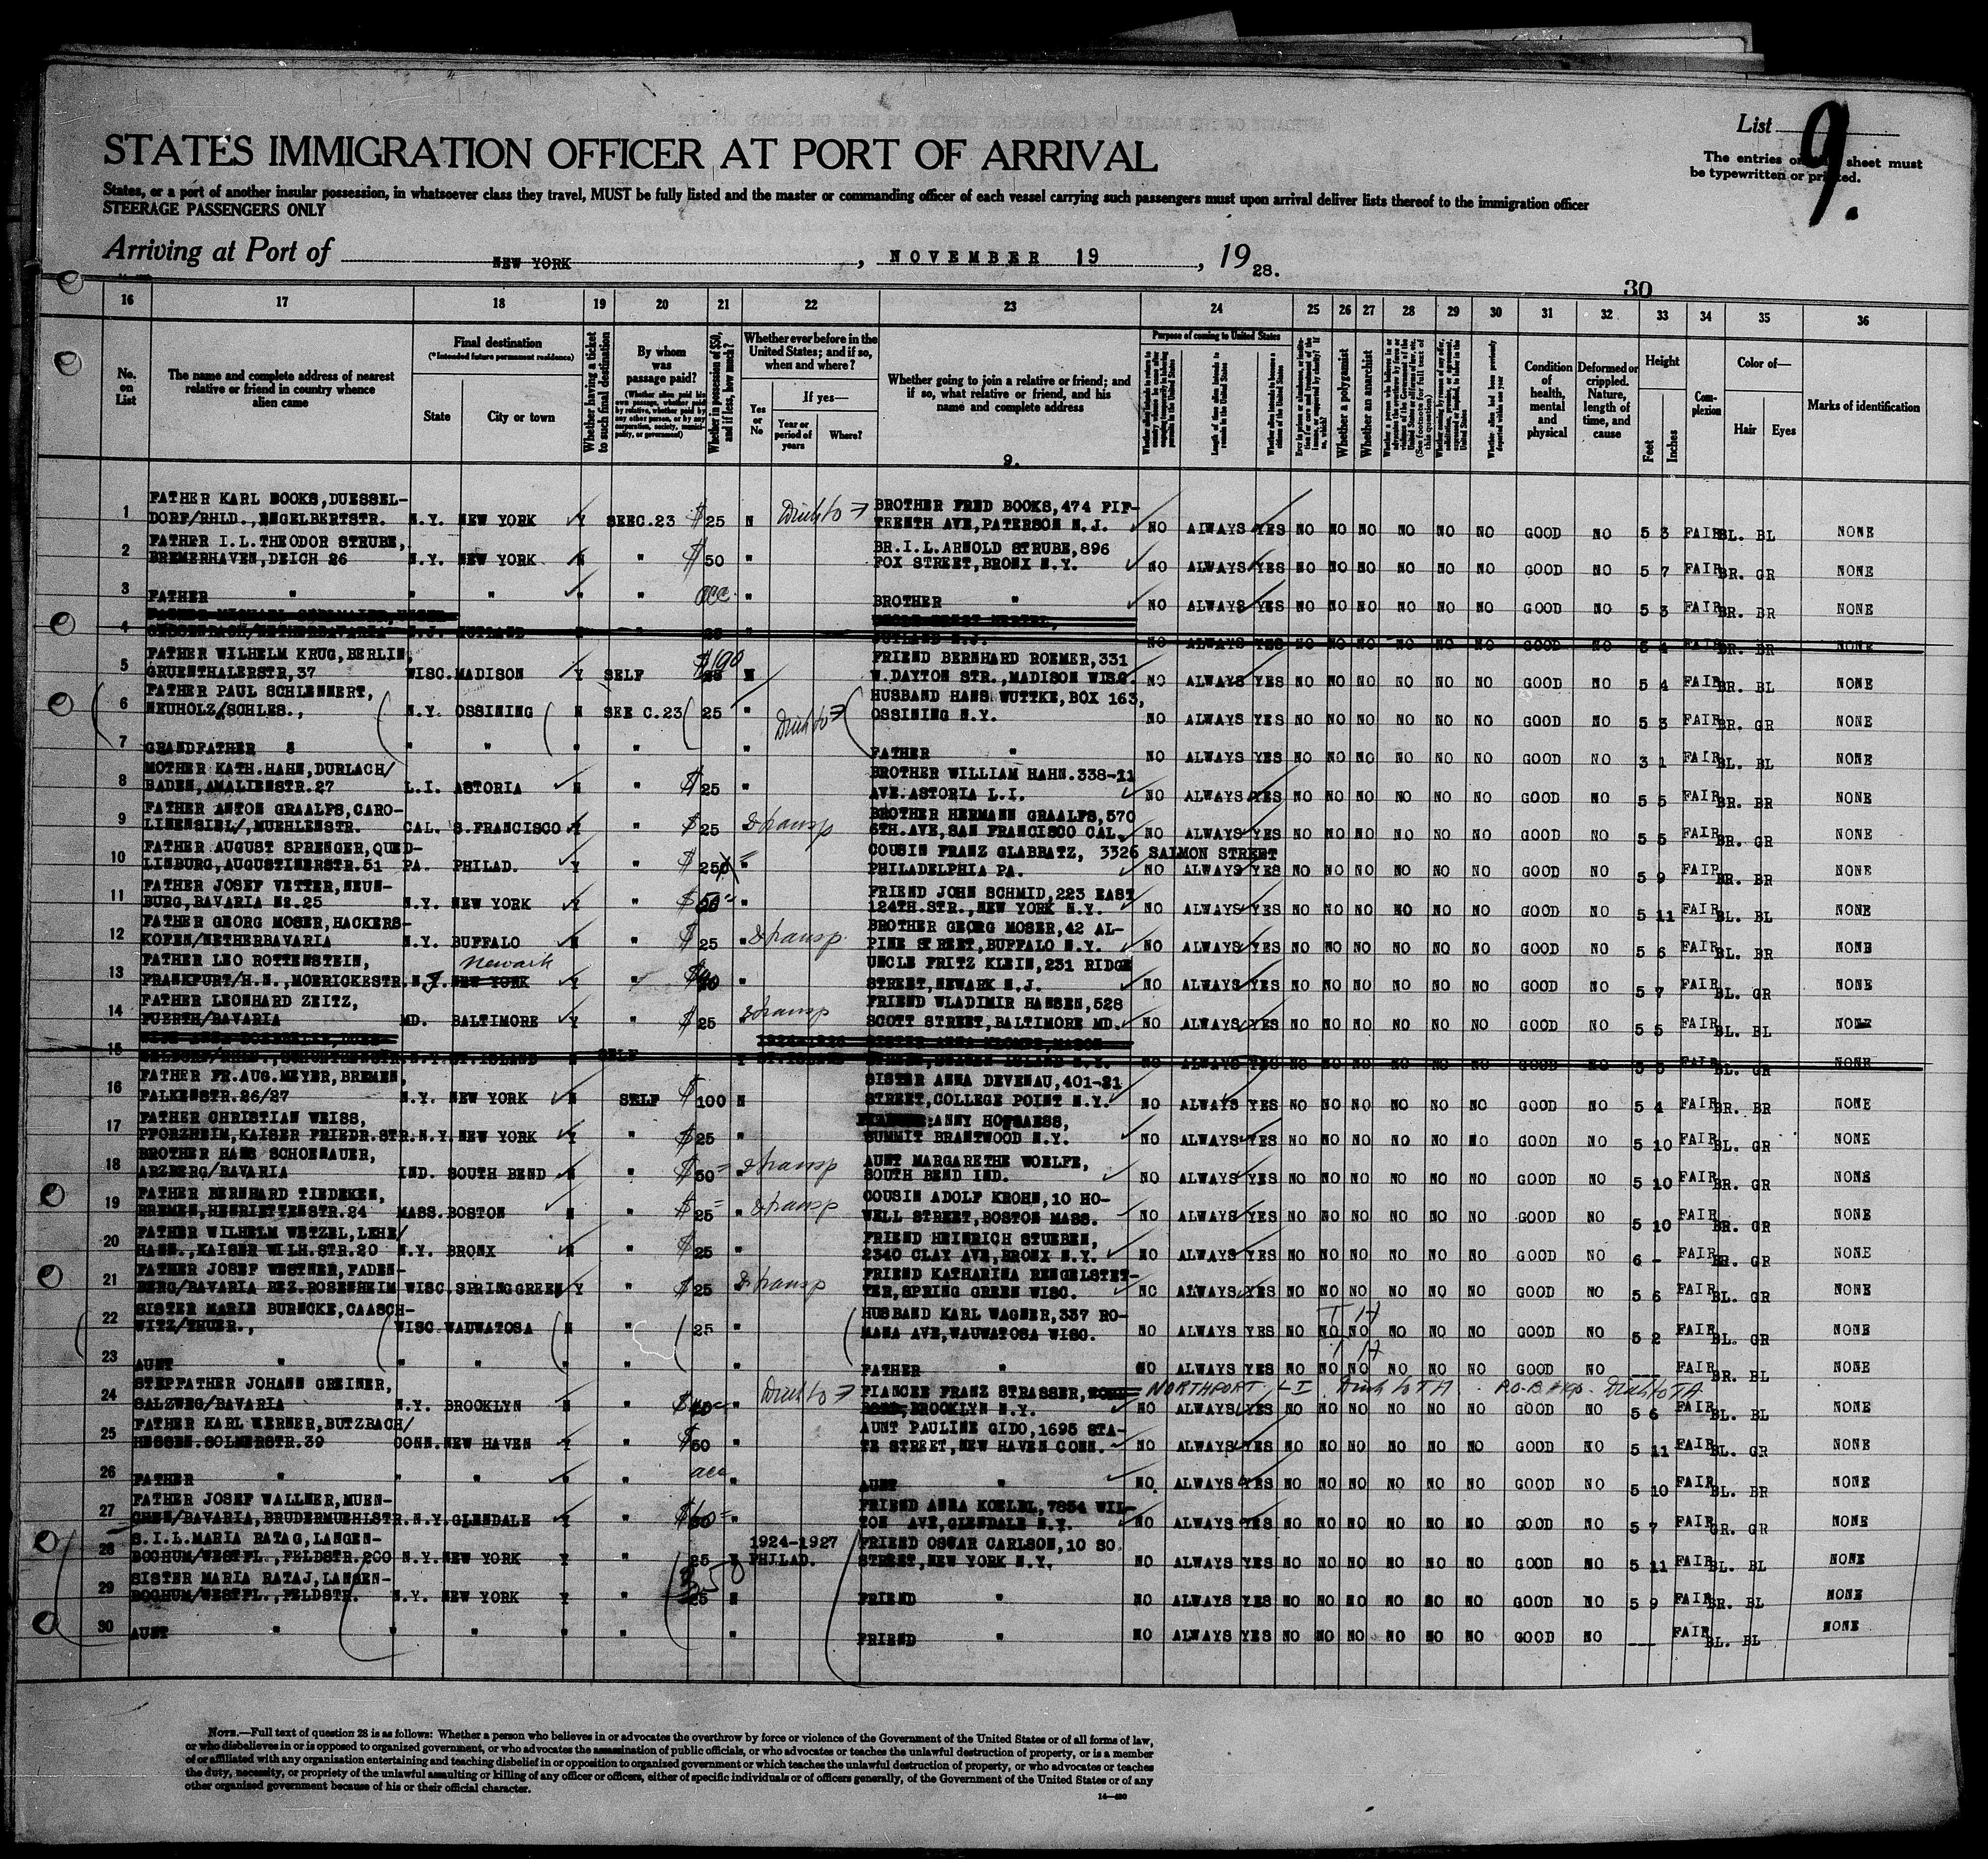 List 9.
The entries on sheet must
be typewritten or printed.
STATES IMMIGRATION OFFICER AT PORT OF ARRIVAL
States, or a port of another insular possession, in whatsoever class they travel, MUST be fully listed and the master or commanding officer of each vessel carrying such passengers must upon arrival deliver lists thereof to the immigration officer
STEERAGE PASSENGERS ONLY
Arriving at Port of NEW YORK, NOVEMBER 19, 1928.
30
16 17 18 19 20 21 22 23 24 25 26 27 28 29 30 31 32 33 34 35 36
No. on List
The name and complete address of nearest relative or friend in country whence alien came
Final destination
(*Intended future permanent residence)
State
City or town
Whether having a ticket to such final destination
By whom was passage paid?
(Whether alien paid his own passage, whether paid by relative, whether paid by any other person, or by any corporation, society, municipality, or government)
Whether in possession of $50, and if less, how much?
Whether ever before in the United States; and if so, when and where?
Yes or No
If yes—
Year or period of years
Where?
Whether going to join a relative or friend; and if so, what relative or friend, and his name and complete address
9.
Purpose of coming to United States
Length of time alien intends to remain in the United States
Whether alien intends to become a citizen of the United States
Whether a polygamist
Whether an anarchist
(See footnote for full text of this question)
Condition of health, mental and physical
Deformed or crippled. Nature, length of time, and cause
Height
Feet
Inches
Complexion
Color of—
Hair
Eyes
Marks of identification
1 FATHER KARL BOOKS, DUESSEL-
DORF/RHLD., ENGELBERTSTR. N.Y. NEW YORK Y SEEC.23 $25 N BROTHER FRED BOOKS, 474 FIF-
TEENTH AVE, PATERSON N.J. NO ALWAYS YES NO NO NO NO NO NO GOOD NO 5 3 FAIR BL. BL NONE
2 FATHER I.L. THEODOR STRUBE,
BREMERHAVEN, DEICH 26 N.Y. NEW YORK N " $50 " BR. I.L. ARNOLD STRUBE, 896
FOX STREET, BRONX N.Y. NO ALWAYS YES NO NO NO NO NO NO GOOD NO 5 7 FAIR BR. GR NONE
3 FATHER " " " " " " BROTHER " NO ALWAYS YES NO NO NO NO NO NO GOOD NO 5 3 FAIR BR. BR NONE
4 N.J. JUTLAND N " 25 " JUTLAND N.J. NO ALWAYS YES NO NO NO NO NO NO GOOD NO 5 4 FAIR BR. BR NONE
5 FATHER WILHELM KRUG, BERLIN,
GRUENTHALERSTR, 37 WISC. MADISON Y SELF $100 N FRIEND BERNHARD ROEMER, 331
W. DAYTON STR., MADISON WISC. NO ALWAYS YES NO NO NO NO NO NO GOOD NO 5 4 FAIR BR. BL NONE
6 FATHER PAUL SCHLENNERT,
NEUHOLZ/SCHLES., N.Y. OSSINING N SEE C.23 25 " HUSBAND HANS WUTTKE, BOX 163,
OSSINING N.Y. NO ALWAYS YES NO NO NO NO NO NO GOOD NO 5 3 FAIR BR. GR NONE
7 GRANDFATHER " " " " " " FATHER " NO ALWAYS YES NO NO NO NO NO NO GOOD NO 3 1 FAIR BL. BL NONE
8 MOTHER KATH. HAHN, DURLACH/
BADEN, AMALIENSTR. 27 L.I. ASTORIA N " $25 " BROTHER WILLIAM HAHN. 338-11
AVE. ASTORIA L.I. NO ALWAYS YES NO NO NO NO NO NO GOOD NO 5 5 FAIR BR. BR NONE
9 FATHER ANTON GRAALFS, CARO-
LINENSIEL/, MUEHLENSTR. CAL. S. FRANCISCO Y " $25 & transp BROTHER HERMANN GRAALFS, 570
6TH. AVE, SAN FRANCISCO CAL. NO ALWAYS YES NO NO NO NO NO NO GOOD NO 5 5 FAIR BR. GR NONE
10 FATHER AUGUST SPRENGER, QUED-
LINBURG, AUGUSTINERSTR. 51 PA. PHILAD. Y " $250 " COUSIN FRANZ GLABRATZ, 3326 SALMON STREET
PHILADELPHIA PA. NO ALWAYS YES NO NO NO NO NO NO GOOD NO 5 9 FAIR BR. BR NONE
11 FATHER JOSEF VETTER, NEUN-
BURG, BAVARIA No. 25 N.Y. NEW YORK Y " $50 " FRIEND JOHN SCHMID, 223 EAST
124TH. STR., NEW YORK N.Y. NO ALWAYS YES NO NO NO NO NO NO GOOD NO 5 11 FAIR BL. BL NONE
12 FATHER GEORG MOSER, HACKERS-
KOFEN/NETHERBAVARIA N.Y. BUFFALO N " $25 " & transp. BROTHER GEORG MOSER, 42 AL-
PINE STREET, BUFFALO N.Y. NO ALWAYS YES NO NO NO NO NO NO GOOD NO 5 6 FAIR BL. BR NONE
13 FATHER LEO ROTTENSTEIN, Newark
FRANKFURT/H.N., MOERICKESTR. N.J. NEW YORK Y " " UNCLE FRITZ KLEIN, 231 RIDGE
STREET, NEWARK N.J. NO ALWAYS YES NO NO NO NO NO NO GOOD NO 5 7 FAIR BL. GR NONE
14 FATHER LEONHARD ZEITZ,
FUERTH/BAVARIA MD. BALTIMORE Y " $25 & transp FRIEND WLADIMIR HANSEN, 528
SCOTT STREET, BALTIMORE MD. NO ALWAYS YES NO NO NO NO NO NO GOOD NO 5 5 FAIR BL. BL NONE
15 N.Y. ST. ISLAND N SELF Y 1924-1926 NO ALWAYS YES NO NO NO NO NO NO GOOD NO 5 5 FAIR BL. GR NONE
16 FATHER FR. AUG. MEYER, BREMEN,
FALKENSTR. 26/27 N.Y. NEW YORK N SELF $100 N SISTER ANNA DEVENAU, 401-21
STREET, COLLEGE POINT N.Y. NO ALWAYS YES NO NO NO NO NO NO GOOD NO 5 4 FAIR BR. BR NONE
17 FATHER CHRISTIAN WEISS,
PFORZHEIM, KAISER FRIEDR. STR. N.Y. NEW YORK Y " $25 " ANNY HOFSAESS,
SUMMIT BRANTWOOD N.Y. NO ALWAYS YES NO NO NO NO NO NO GOOD NO 5 10 FAIR BL. GR NONE
18 BROTHER HANS SCHOENAUER,
ARZBERG/BAVARIA IND. SOUTH BEND N " $50 & transp AUNT MARGARETHE WOELFE,
SOUTH BEND IND. NO ALWAYS YES NO NO NO NO NO NO GOOD NO 5 10 FAIR BR. GR NONE
19 FATHER BERNHARD TIEDEKEN,
BREMEN, HENRIETTENSTR. 24 MASS. BOSTON N " $25 " & transp COUSIN ADOLF KROHN, 10 HO-
WELL STREET, BOSTON MASS. NO ALWAYS YES NO NO NO NO NO NO GOOD NO 5 10 FAIR BR. GR NONE
20 FATHER WILHELM WETZEL, LEHE/
HANN., KAISER WILH. STR. 20 N.Y. BRONX N " $25 " FRIEND HEINRICH STUEBEN,
2340 CLAY AVE, BRONX N.Y. NO ALWAYS YES NO NO NO NO NO NO GOOD NO 6 - FAIR GR NONE
21 FATHER JOSEF WESTNER, FADEN-
BERG/BAVARIA BEZ. ROSENHEIM WISC. SPRINGGREEN Y " $25 & transp FRIEND KATHARINA RENGELSTET-
TER, SPRING GREEN WISC. NO ALWAYS YES NO NO NO NO NO NO GOOD NO 5 6 FAIR BL. GR NONE
22 SISTER MARIE BURNCKE, CAASCH-
WITZ/THUER., WISC. WAUWATOSA N " 25 " HUSBAND KARL WAGNER, 337 RO-
MANA AVE, WAUWATOSA WISC. NO ALWAYS YES NO NO NO NO NO NO GOOD NO 5 2 FAIR BL. GR NONE
23 AUNT " " " " " " FATHER " NO ALWAYS YES NO NO NO NO NO NO GOOD NO --- FAIR BR. BL NONE
24 STEPFATHER JOHANN GREINER,
SALZWEG/BAVARIA N.Y. BROOKLYN N " " FIANCEE FRANZ STRASSER, NORTHPORT, L I
BROOKLYN N.Y. NO ALWAYS YES NO NO NO NO NO NO GOOD NO 5 6 FAIR BL. BL NONE
25 FATHER KARL WERNER, BUTZBACH/
HESSEN. SOLMERSTR. 39 CONN. NEW HAVEN Y " $50 " AUNT PAULINE GIDO, 1695 STA-
TE STREET, NEW HAVEN CONN. NO ALWAYS YES NO NO NO NO NO NO GOOD NO 5 11 FAIR BL. GR NONE
26 FATHER " " " " " acc " AUNT " NO ALWAYS YES NO NO NO NO NO NO GOOD NO 5 10 FAIR BL. BR NONE
27 FATHER JOSEF WALLNER, MUEN-
CHEN/BAVARIA, BRUDERMUEHLSTR. N.Y. GLENDALE Y " " FRIEND ANNA KOELBL, 7854 WIL-
TON AVE, GLENDALE N.Y. NO ALWAYS YES NO NO NO NO NO NO GOOD NO 5 7 FAIR GR. GR NONE
28 S.I.L. MARIA RATAG, LANGEN-
BOCHUM/WESTFL., FELDSTR. 200 N.Y. NEW YORK Y " 25 Y 1924-1927 PHILAD. FRIEND OSWAR CARLSON, 10 SO.
STREET, NEW YORK N.Y. NO ALWAYS YES NO NO NO NO NO NO GOOD NO 5 11 FAIR BL. BL NONE
29 SISTER MARIA RATAJ, LANGEN-
BOCHUM/WESTFL., FELDSTR. N.Y. NEW YORK Y " 25 N FRIEND " NO ALWAYS YES NO NO NO NO NO NO GOOD NO 5 9 FAIR BR. BL NONE
30 AUNT " " " " " " FRIEND " NO ALWAYS YES NO NO NO NO NO NO GOOD NO --- FAIR BL. BL NONE
NOTE.—Full text of question 28 is as follows: Whether a person who believes in or advocates the overthrow by force or violence of the Government of the United States or of all forms of law,
or who disbelieves in or is opposed to organized government, or who advocates the assassination of public officials, or who advocates or teaches the unlawful destruction of property, or is a member
of or affiliated with any organization entertaining and teaching disbelief in or opposition to organized government or which teaches the unlawful destruction of property, or who advocates or teaches
the duty, necessity, or propriety of the unlawful assaulting or killing of any officer or officers, either of specific individuals or of officers generally, of the Government of the United States or of any
other organized government because of his or their official character.
14—430